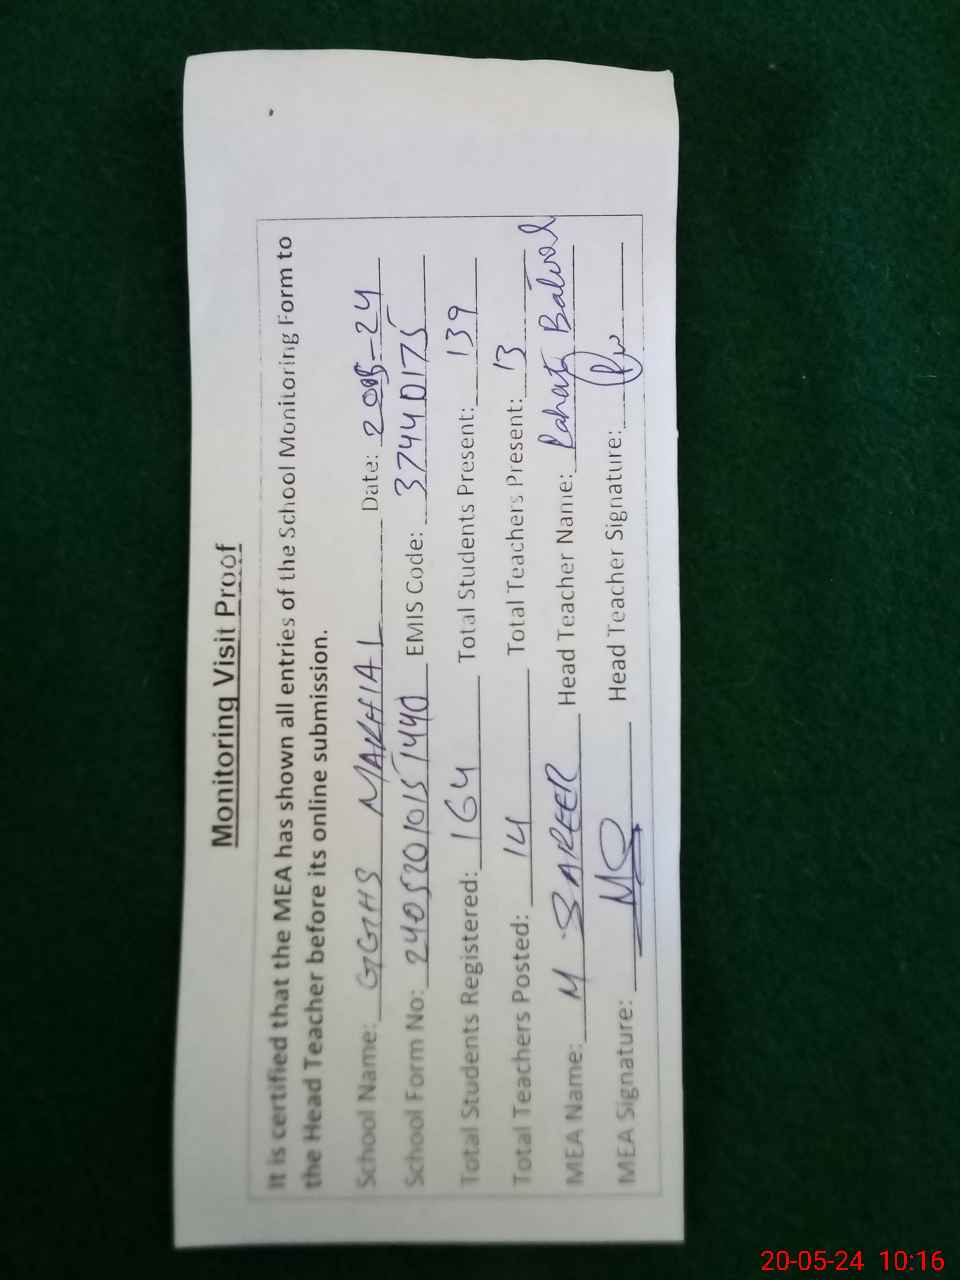 Monitoring Visit Proof
It is certified that the MEA has shown all entries of the School Monitoring Form to
the Head Teacher before its online submission.
School Name: GGHS MAKHIAL Date: 2005-24
School Form No: 24052010151440 EMIS Code: 37440175
Total Students Registered: 164 Total Students Present: 139
Total Teachers Posted: 14 Total Teachers Present: 13
MEA Name: M SAREER Head Teacher Name: Rahat Batool
MEA Signature: MS Head Teacher Signature:
20-05-24 10:16